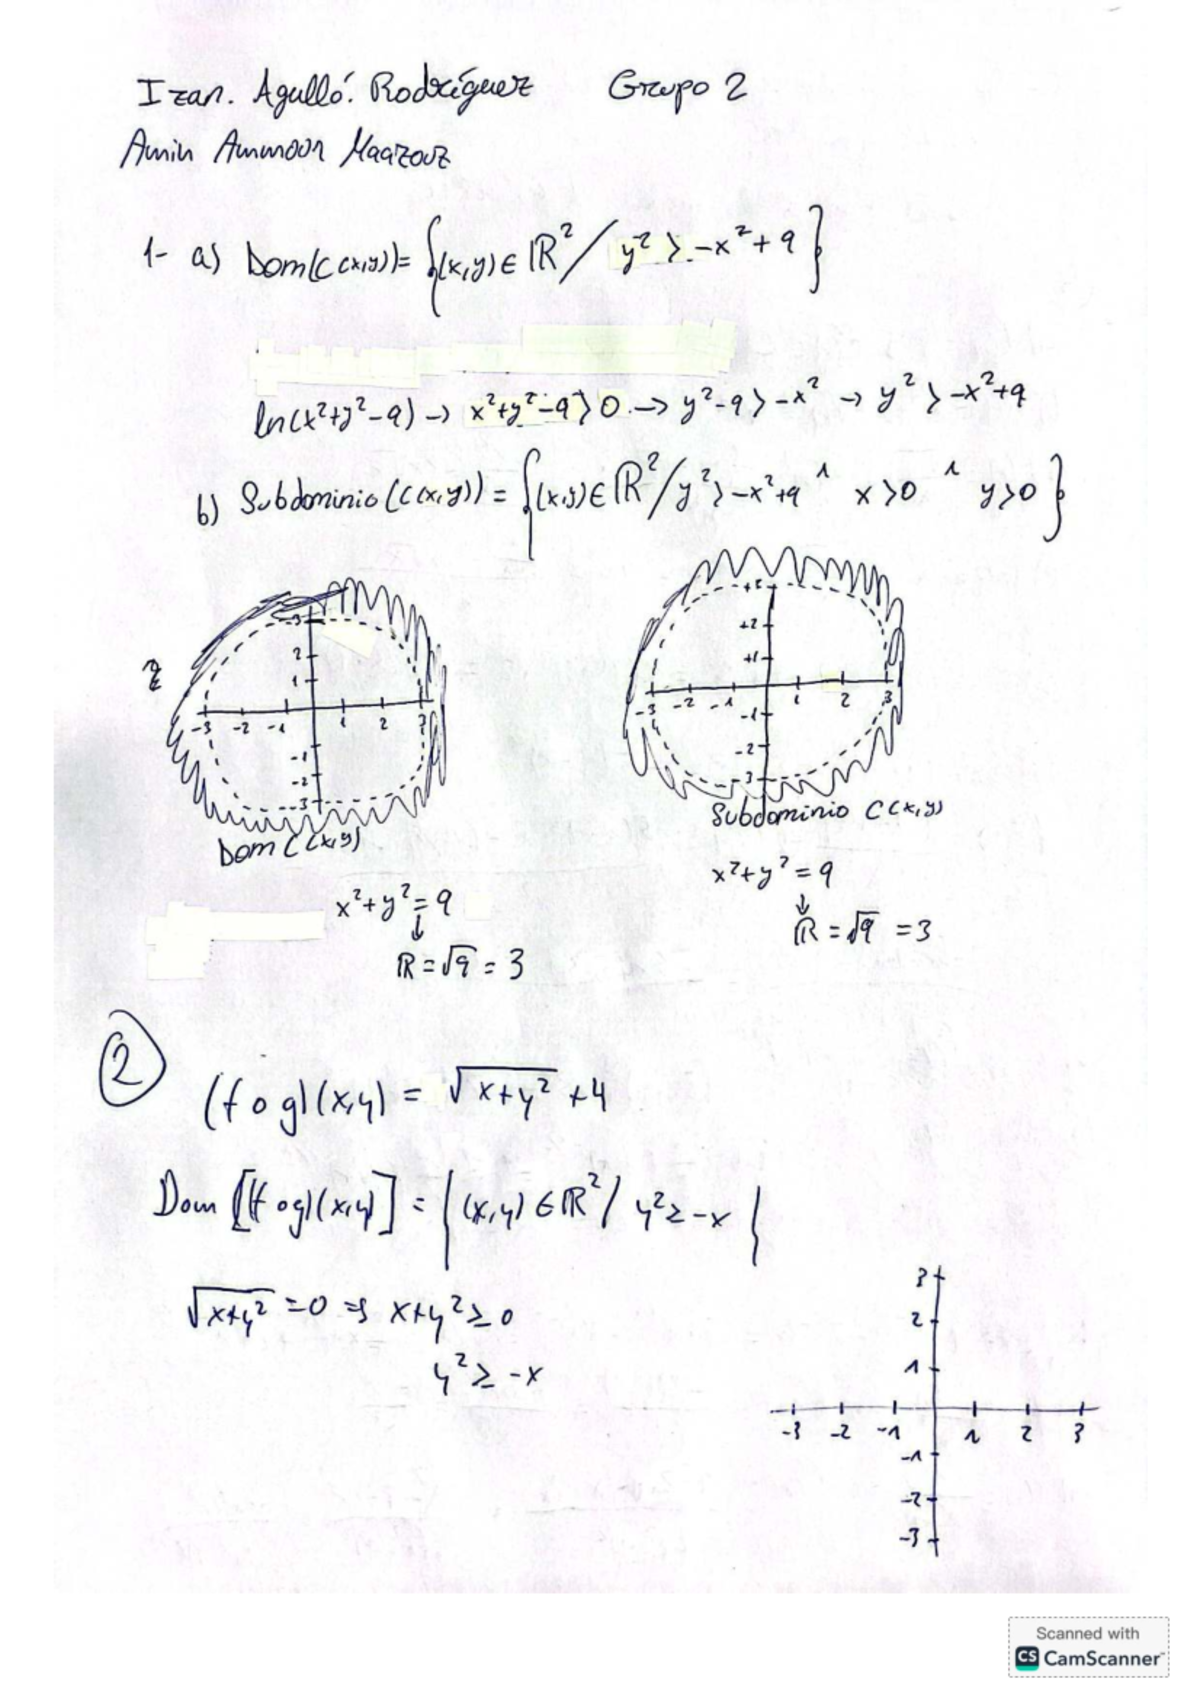 Izan. Agulló. Rodríguez Grupo 2
Amin Ammour Maazouz
1- a) Dom(C(x,y))= {(x,y)∈ℝ²/ y²>-x²+9}
ln(x²+y²-9) → x²+y²-9>0 → y²-9>-x² → y²>-x²+9
b) Subdominio (C(x,y)) = {(x,y)∈ℝ²/y²>-x²+9 ∧ x>0 ∧ y>0}
3
2
1
-3 -2 -1 1 2 3
-1
-2
-3
Dom C(x,y)
x²+y²=9
↓
R=√9=3
+2
+1
-3 -2 -1 1 2 3
-1
-2
-3
Subdominio C(x,y)
x²+y²=9
↓
R=√9 =3
2
(f o g)(x,y) = √x+y² +4
Dom [(f o g)(x,y)] = {(x,y)∈ℝ²/ y²≥-x}
√x+y² =0 ⇒ x+y²≥0
y²≥-x
3
2
1
-3 -2 -1 1 2 3
-1
-2
-3
Scanned with
CS CamScanner